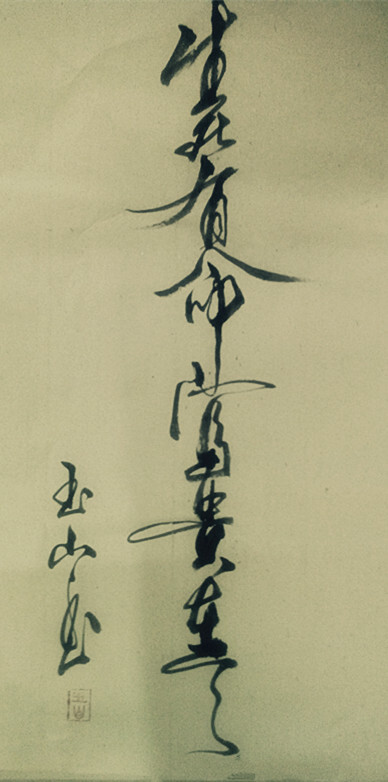 生死有命富貴在天
玉山
玉山